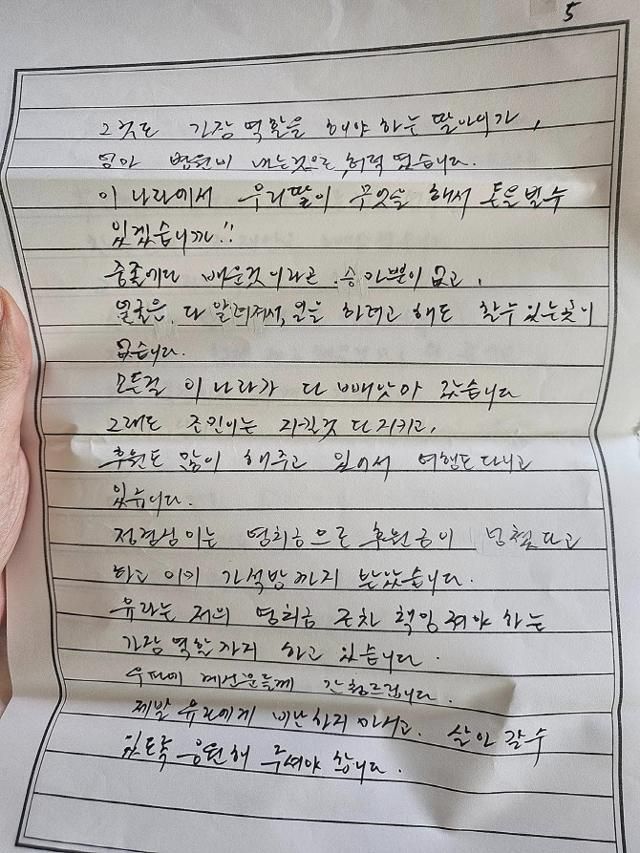 5
그것도 가장 역활을 해야 하는 딸아이가,
엄마 병원비 내는것으로, 허덕 였습니다.
이 나라에서 우리딸이 무엇을 해서 돈을 벌수
있겠습니까!!
중졸에다 배운것이라곤 승마뿐이 없고,
얼굴은, 다 알려져서, 일을 하려고 해도 할수 있는곳이
없습니다.
모든걸 이 나라가 다 빼앗아 갔습니다
그래도 조민이는 지킬것 다 지키고,
후원도 많이 해주고 있어서 여행도 다니고
있습니다.
정경심이는 영치금으로 후원금이 넘쳤다고
하고 이미 가석방까지 받았습니다.
유라는 저의 영치금 조차 책임져야 하는
가장 역할까지 하고 있습니다.
우파에 계신분들께 간청드립니다.
제발 유라에게 비난하지 마시고. 살아 갈수
있도록 응원해 주셔야 합니다.